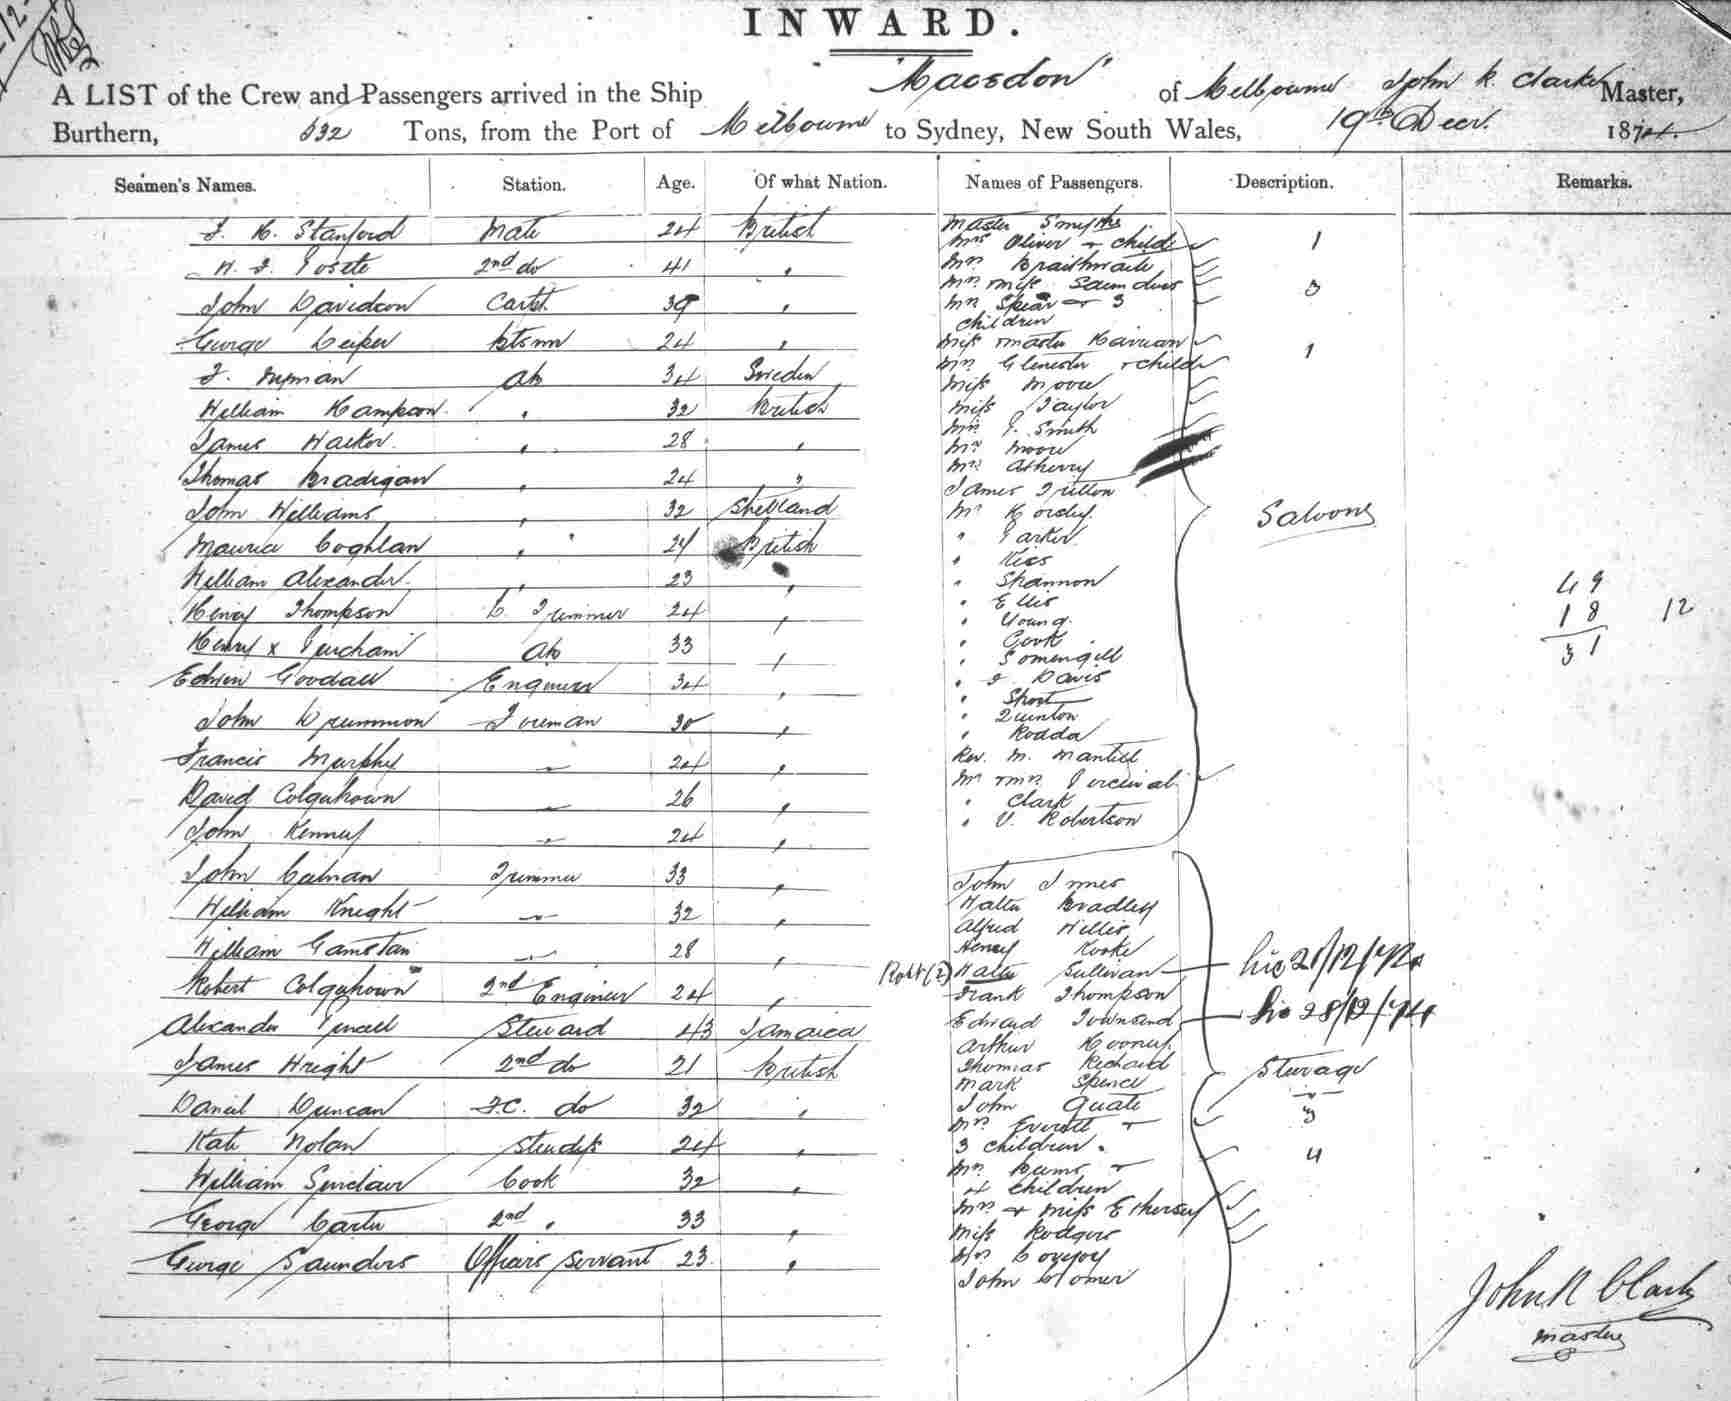 INWARD.
"Macedon"
A LIST of the Crew and Passengers arrived in the Ship of Melbourne John K. Clarke Master,
Burthern, 532 Tons, from the Port of Melbourne to Sydney, New South Wales, 19th Decr. 1874.
Seamen's Names. Station. Age. Of what Nation. Names of Passengers. Description. Remarks.
J. H. Stanford Mate 24 British
2nd do 41 "
John Davidson Carptr 39 "
George Leiper Btsmn 24 "
J. Nyman AB 34 Sweden
William Hampson " 32 British
James Walker " 28 "
Thomas Bradigan " 24 "
John Williams " 32 Shetland
Maurice Coghlan " 24 British
William Alexander " 23 "
Henry Thompson L. Trimmer 24 "
Henry x Percham AB 33 "
Edwin Goodall Engineer 34 "
John Drummon Foreman 30 "
Francis Murphy " 24 "
David Colquhown " 26 "
John Kenney " 24 "
John Calnan Trimmer 33 "
William Knight " 32 "
William Gamstan " 28 "
Robert Colquhown 2nd Engineer 24 "
Alexander Steward 43 Jamaica
James Wright 2nd do 21 British
Daniel Duncan F.C. do 32 "
Kate Nolan Stewdss 24 "
William Sinclair Cook 32 "
George Carter 2nd " 33 "
George Saunders Officers Servant 23 "
Master Smythe
Mrs Oliver & child 1
Mrs Braithwaite
Mrs & Miss Saunders
Mrs Spear & 3 3
children
Miss & Master
Mrs Glenester & child 1
Miss Moore
Miss Taylor
Mrs J. Smith
Mrs Moore
Mrs
James Tritton
Mr Cordy
" Parker
" Kiss
" Shannon
" Ellis
" Young
" Cook
" Somengill
" J. Davis
" Short
" Quinton
" Rodda
Rev. M. Mantill
Mr & Mrs Percival
" Clark
" V. Robertson
Saloons
49
18 12
31
John Innes
Walter Bradley
Alfred Willis
Henry Rooke
Robt (?) Walter Sullivan 21/12/74
Frank Thompson
Edward Townsend 28/12/74
Arthur
Thomas Richard
Mark Spence
John Quate
Mrs Everett & 3
3 children
Mrs Burns & 4
4 children
Mrs & Miss Ethersey
Miss Rodgers
Mrs
John
Steerage
John K Clark
Master